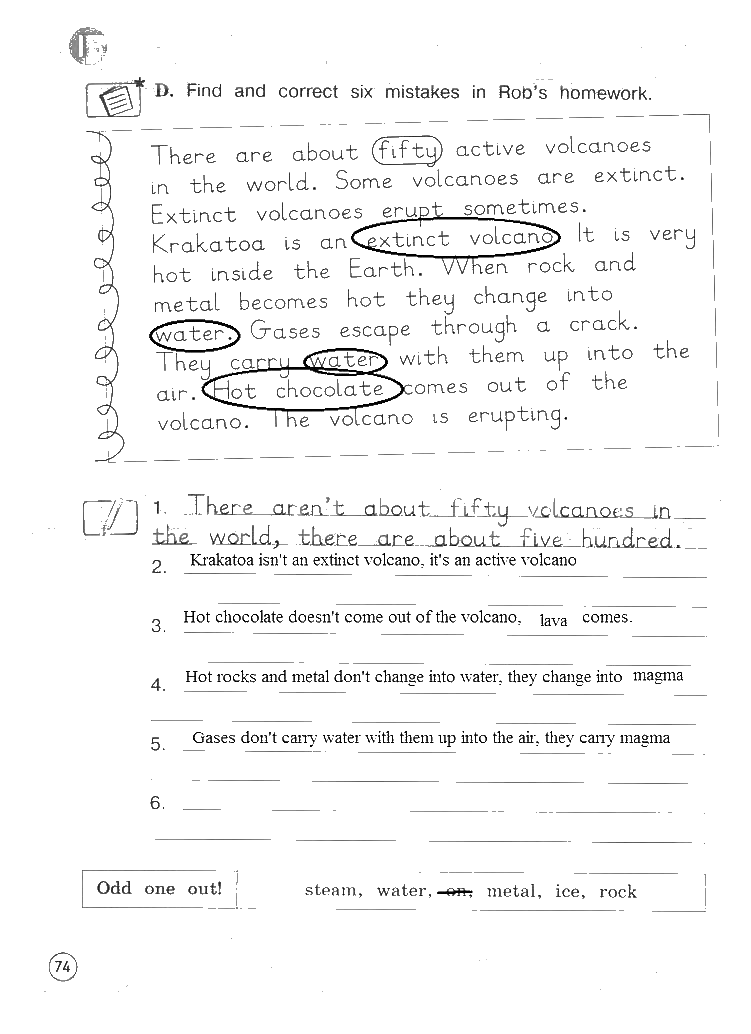 D. Find and correct six mistakes in Rob's homework.
There are about fifty active volcanoes
in the world. Some volcanoes are extinct.
Extinct volcanoes erupt sometimes.
Krakatoa is an extinct volcano It is very
hot inside the Earth. When rock and
metal becomes hot they change into
water. Gases escape through a crack.
They carry water with them up into the
air. Hot chocolate comes out of the
volcano. The volcano is erupting.
1. There aren't about fifty volcanoes in
the world, there are about five hundred.
2. Krakatoa isn't an extinct volcano, it's an active volcano
3. Hot chocolate doesn't come out of the volcano, lava comes.
4. Hot rocks and metal don't change into water, they change into magma
5. Gases don't carry water with them up into the air, they carry magma
6.
Odd one out! steam, water, on, metal, ice, rock
74